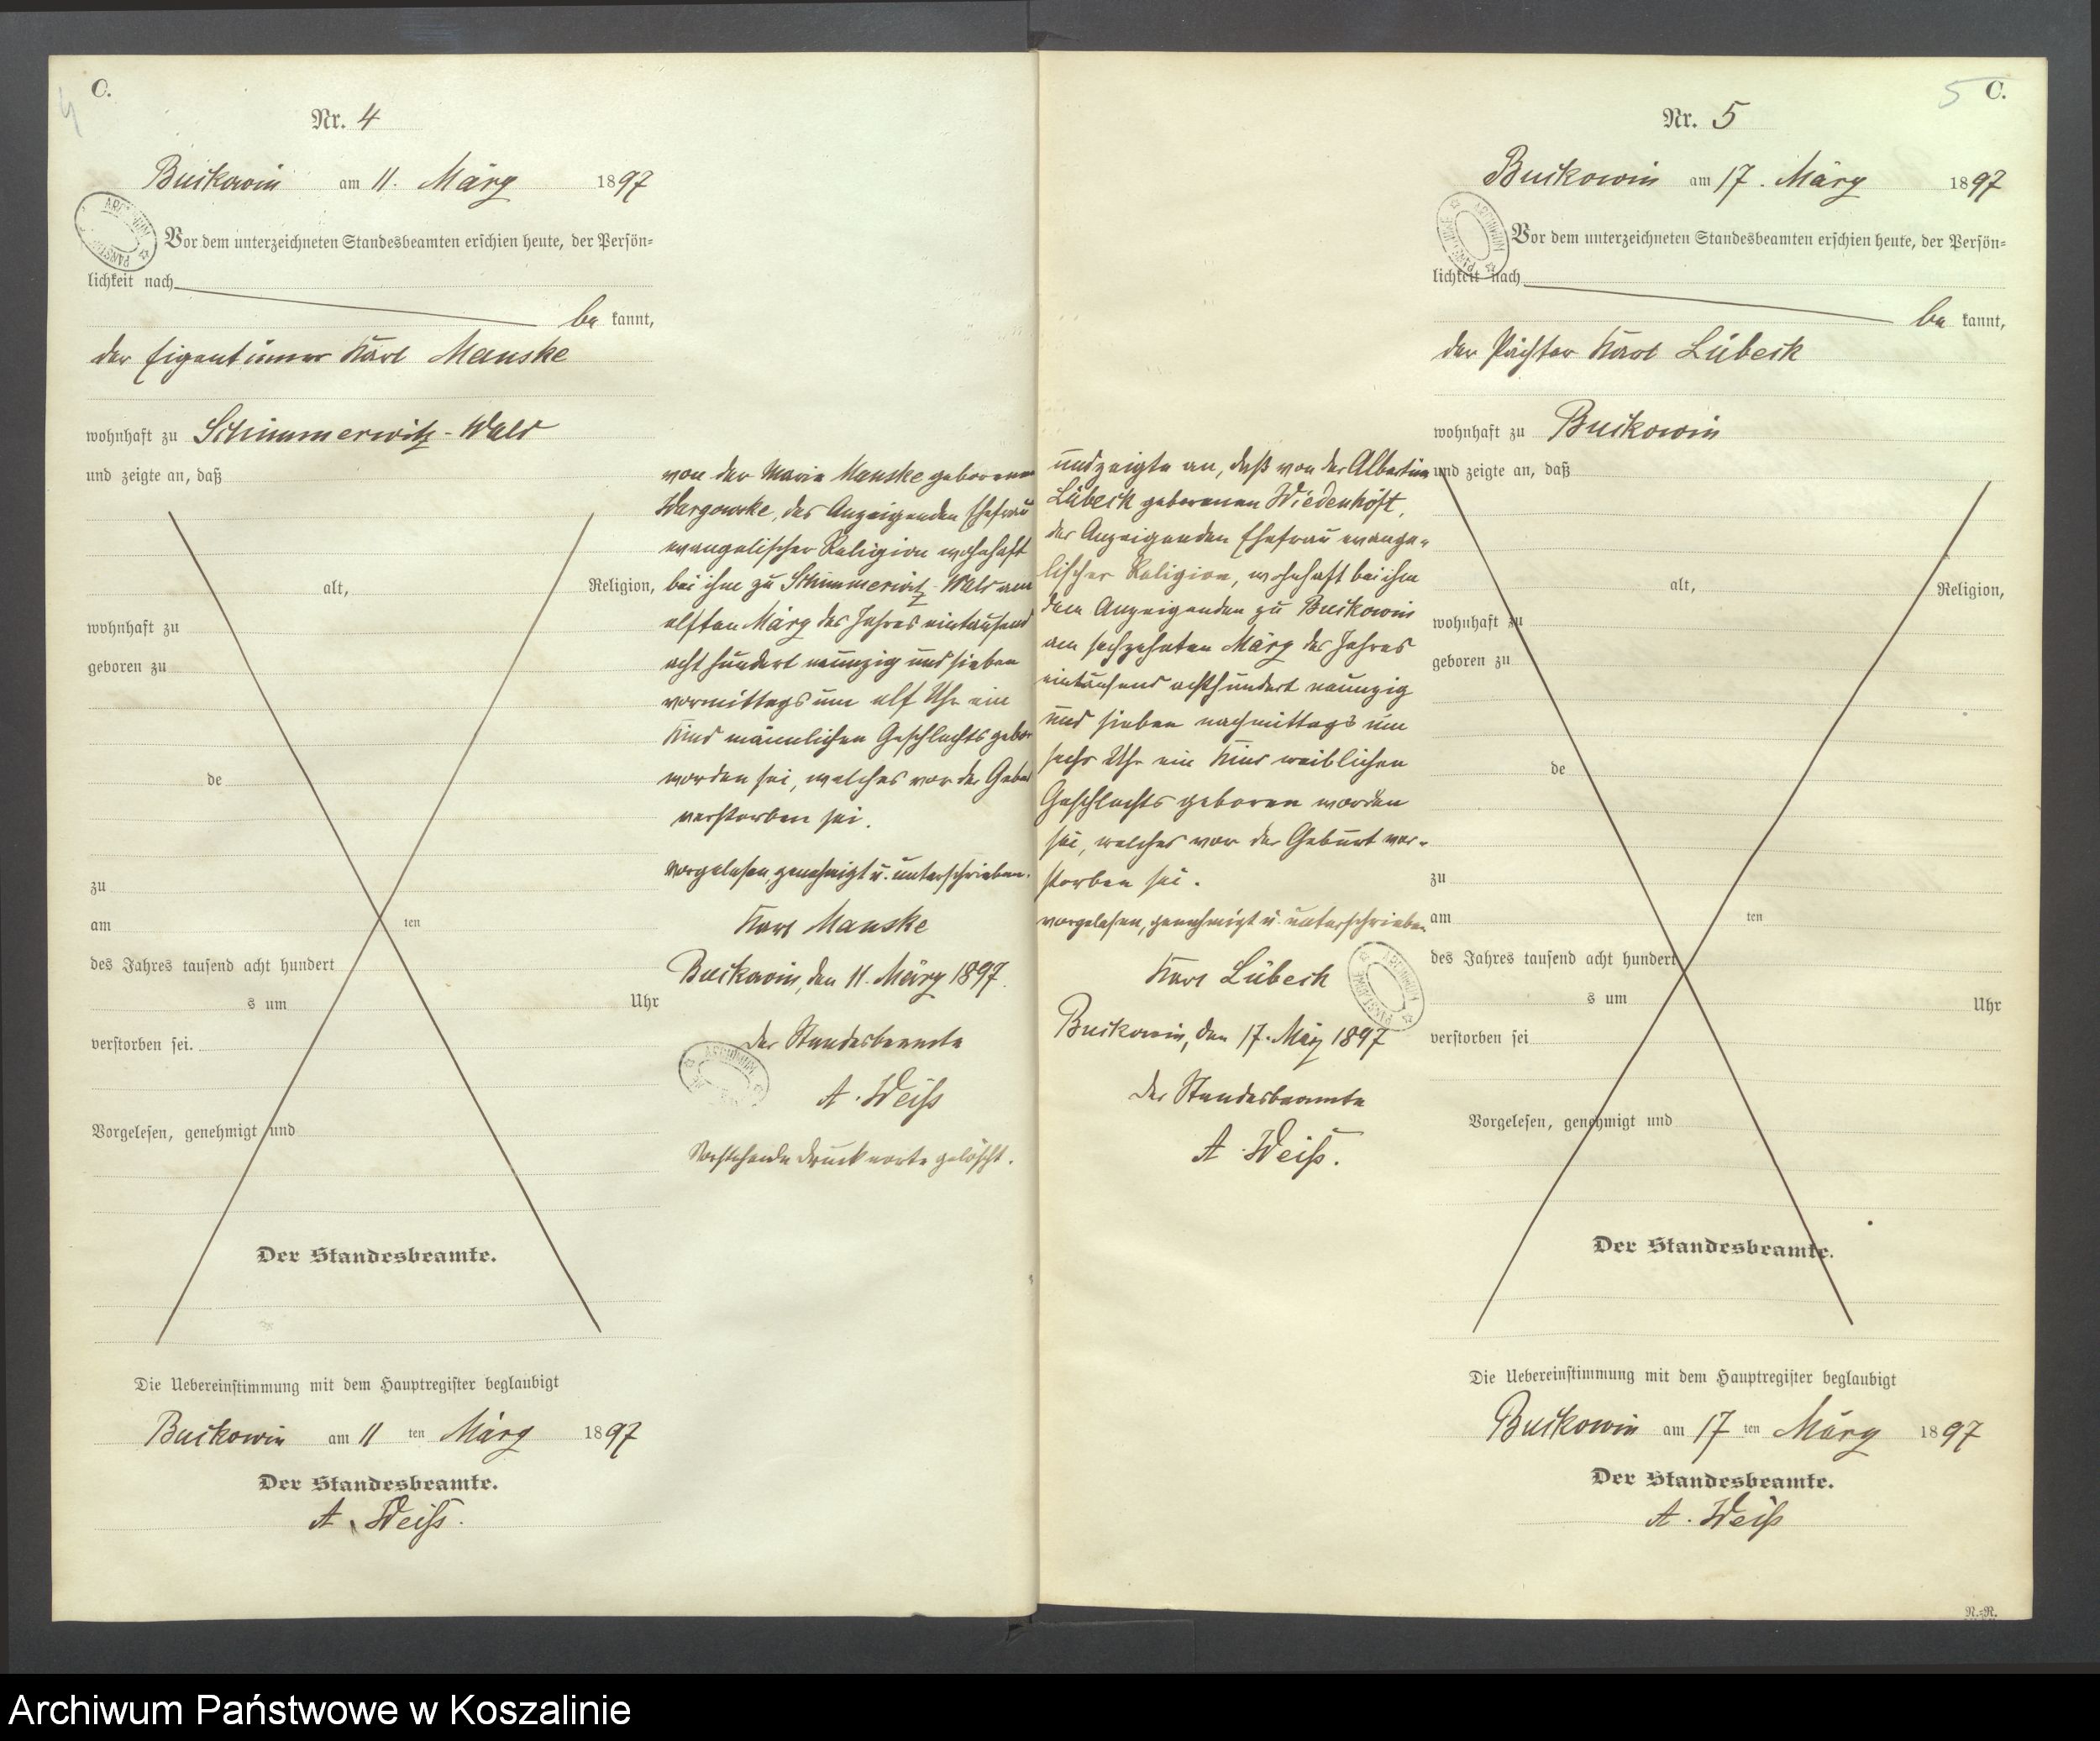 C.
4
Nr. 4
Buckowin am 11. März 1897
Vor dem unterzeichneten Standesbeamten erschien heute, der Persön=
lichkeit nach
be kannt,
der Eigentümer Karl Manske
wohnhaft zu Schimmerwitz-Wald
und zeigte an, daß
alt, Religion,
wohnhaft zu
geboren zu
de
zu
am ten
des Jahres tausend acht hundert
s um Uhr
verstorben sei.
Vorgelesen, genehmigt und
Der Standesbeamte.
Die Uebereinstimmung mit dem Hauptregister beglaubigt
Buckowin am 11 ten März 1897
Der Standesbeamte.
A. Weiß.
von der Marie Manske geborenen
des Anzeigenden Ehefrau
evangelischer Religion wohnhaft
bei ihm zu Schimmerwitz-Wald am
elften März des Jahres eintausend
acht hundert neunzig und sieben
vormittags um elf Uhr ein
Kind männlichen Geschlechts gebor
worden sei, welches vor der Gebu
verstorben sei.
vorgelesen, genehmigt u. unterschrieben.
Karl Manske
Buckowin, den 11. März 1897.
der Standesbeamte
A. Weiß
Vorstehende Druckworte gelöscht.
ARCHIWUM
5 C.
Nr. 5
Buckowin am 17. März 1897
Vor dem unterzeichneten Standesbeamten erschien heute, der Persön=
lichkeit nach
be kannt,
der Pächter Karl Lübeck
wohnhaft zu Buckowin
und zeigte an, daß
alt, Religion,
wohnhaft zu
geboren zu
de
zu
am ten
des Jahres tausend acht hundert
s um Uhr
verstorben sei
Vorgelesen, genehmigt und
Der Standesbeamte.
Die Uebereinstimmung mit dem Hauptregister beglaubigt
Buckowin am 17 ten März 1897
Der Standesbeamte.
A. Weiß
N.=N.
und zeigte an, daß von der Albertine
Lübeck geborenen Wiedenhöft,
des Anzeigenden Ehefrau evange=
lischer Religion, wohnhaft bei ihm
dem Anzeigenden zu Buckowin
am sechzehnten März des Jahres
eintausend achthundert neunzig
und sieben nachmittags um
sechs Uhr ein Kind weiblichen
Geschlechts geboren worden
sei, welches vor der Geburt ver=
storben sei.
vorgelesen, genehmigt u. unterschrieben
Karl Lübeck
Buckowin, den 17. März 1897
der Standesbeamte
A. Weiß.
Archiwum Państwowe w Koszalinie